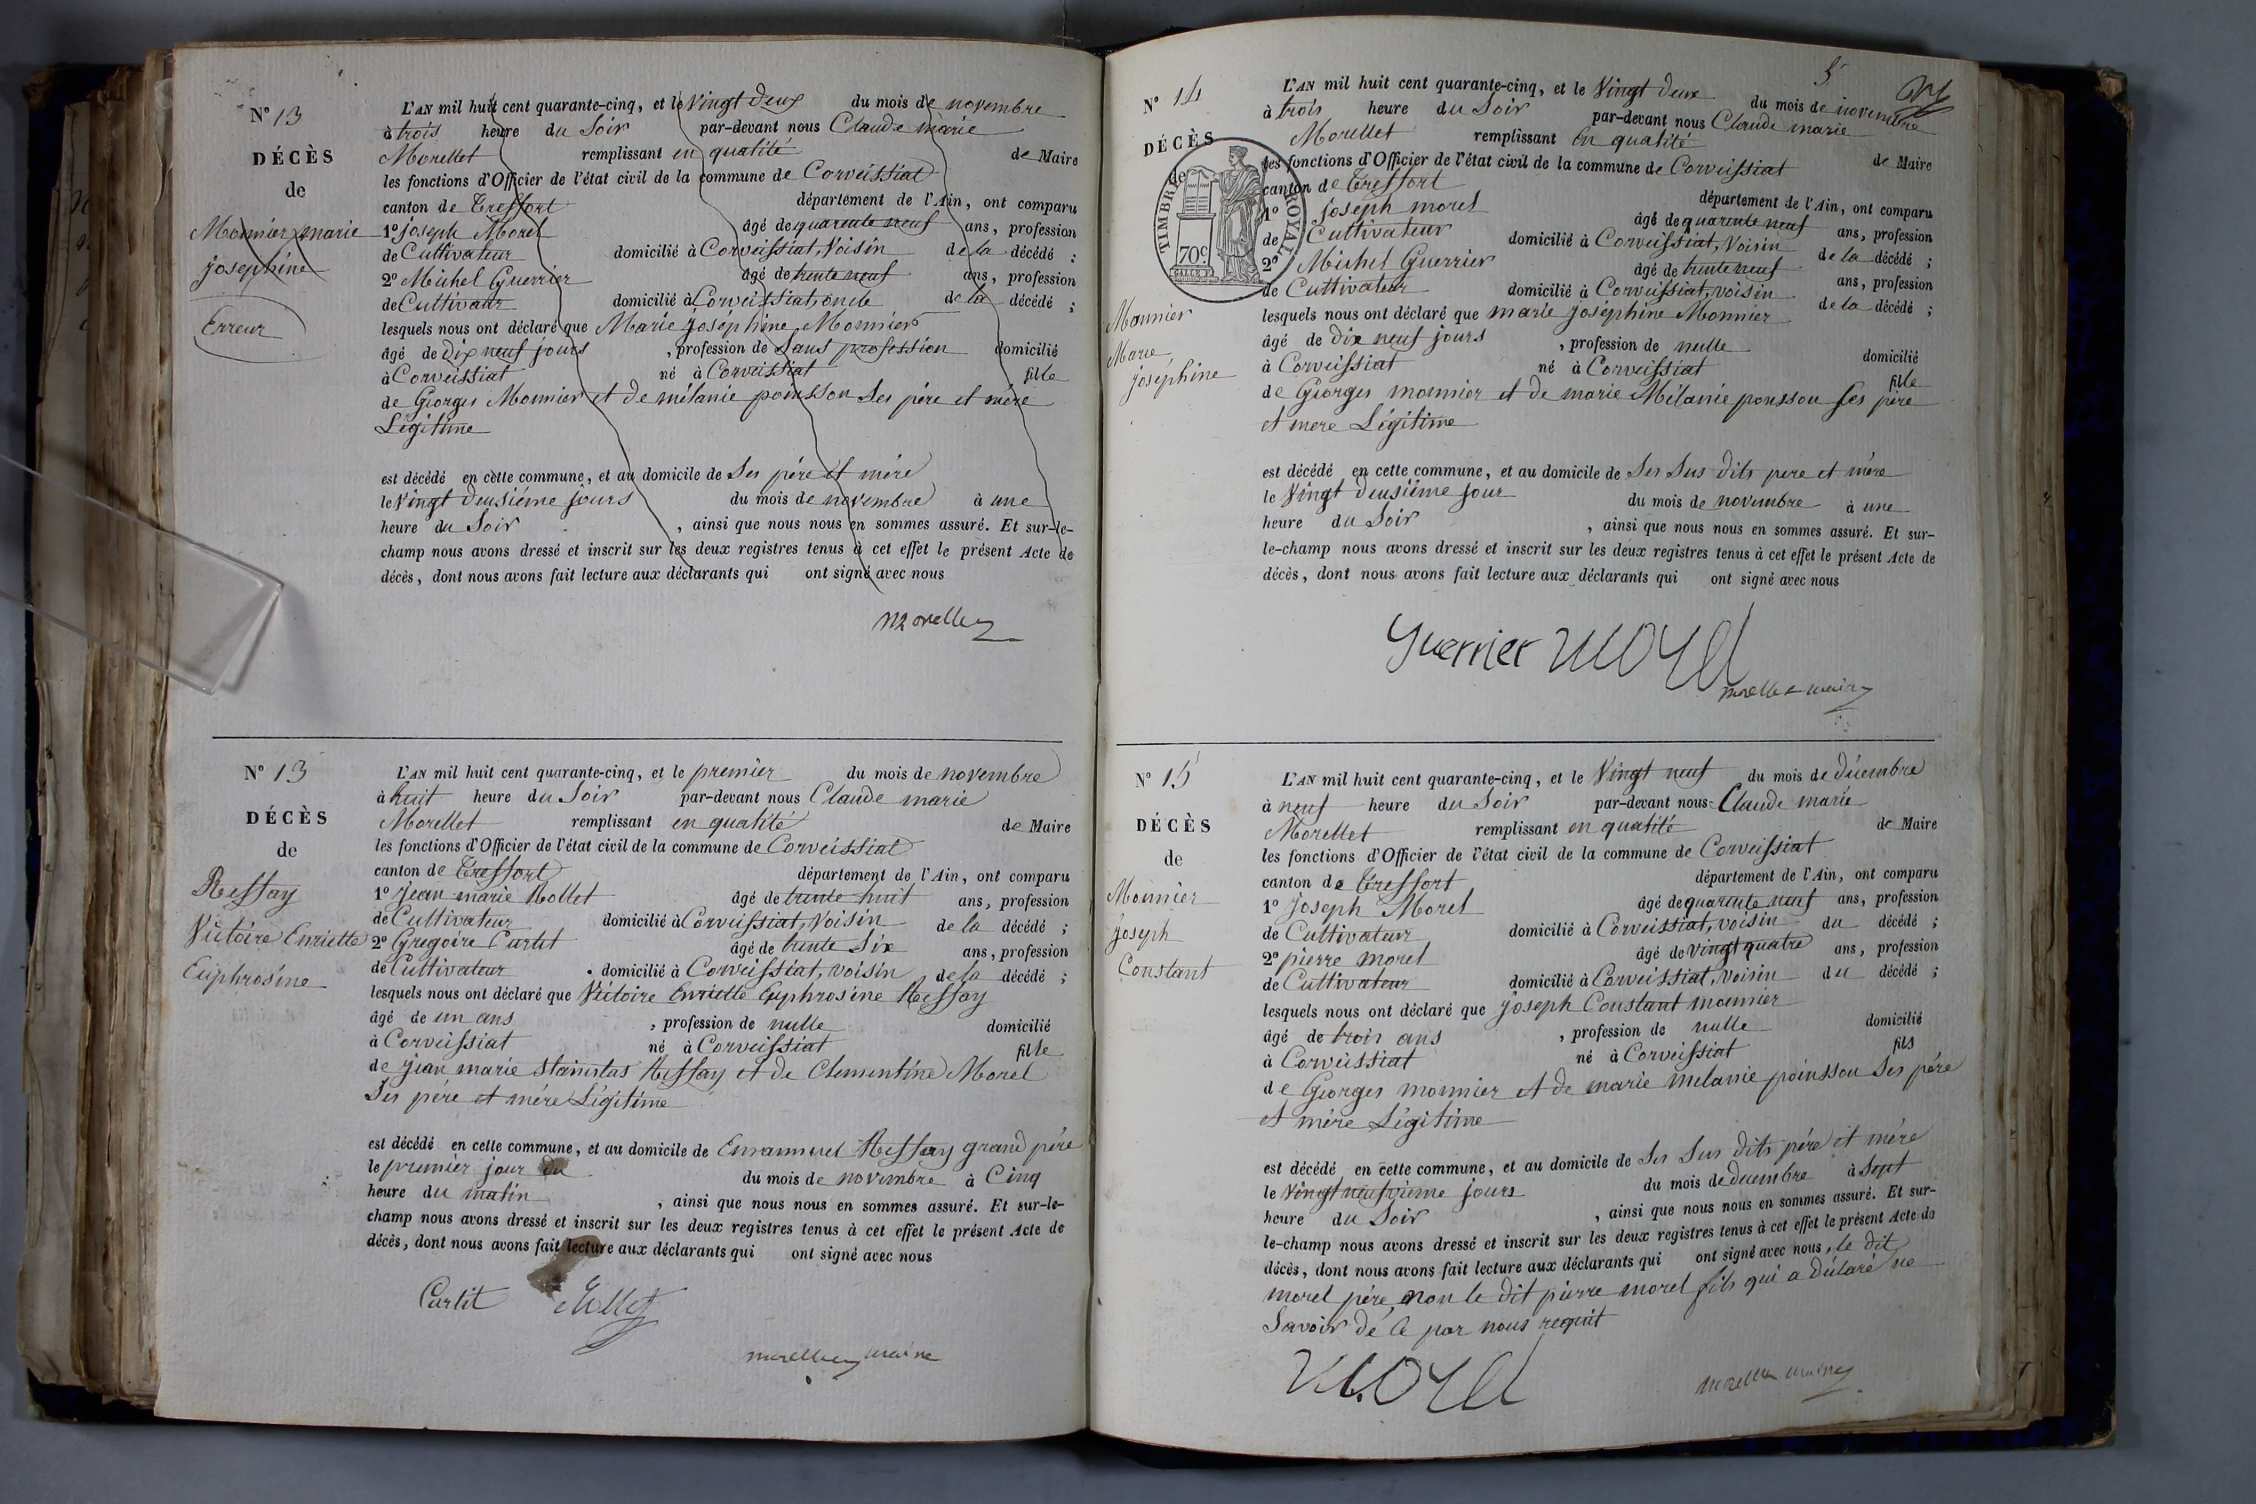 N° 13
DÉCÈS
de
Monnier marie
josephine
Erreur
L'AN mil huit cent quarante-cinq, et le Vingt deux du mois de novembre
à trois heure du Soir par-devant nous Claude marie
Morellet remplissant en qualité de Maire
les fonctions d'Officier de l'état civil de la commune de Corveissiat
canton de Treffort département de l'Ain, ont comparu
1° Joseph Morel âgé de quarente neuf ans, profession
de Cultivateur domicilié à Corveissiat, Voisin de la décédé ;
2° Michel Guerrier âgé de trente neuf ans, profession
de Cultivateur domicilié à Corveissiat, oncle de la décédé ;
lesquels nous ont déclaré que Marie joséphine Monnier
âgé de Dix neuf jours , profession de Sans profession domicilié
à Corveissiat né à Corveissiat fille
de Georges Monnier et de mélanie poinsson Ses père et mère
Légitime
est décédé en cette commune, et au domicile de Ses père et mère
le Vingt deusième jours du mois de novembre à une
heure du Soir , ainsi que nous nous en sommes assuré. Et sur-le-
champ nous avons dressé et inscrit sur les deux registres tenus à cet effet le présent Acte de
décès, dont nous avons fait lecture aux déclarants qui ont signé avec nous
Morellet
N° 13
DÉCÈS
de
Reffay
Victoire Enriette
Euphrosine
L'AN mil huit cent quarante-cinq, et le premier du mois de novembre
à huit heure du Soir par-devant nous Claude marie
Morellet remplissant en qualité de Maire
les fonctions d'Officier de l'état civil de la commune de Corveissiat
canton de Treffort département de l'Ain, ont comparu
1° Jean marie Rollet âgé de trente huit ans, profession
de Cultivateur domicilié à Corveissiat, Voisin de la décédé ;
2° Gregoire Curtit âgé de trente Six ans, profession
de Cultivateur domicilié à Corveissiat, voisin de la décédé ;
lesquels nous ont déclaré que Victoire Enriette Euphrosine Reffay
âgé de un ans , profession de nulle domicilié
à Corveissiat né à Corveissiat fille
de jean marie stanislas Reffay et de Clementine Morel
Ses père et mère Légitime
est décédé en cette commune, et au domicile de Emmanuel Reffay grand père
le premier jour du du mois de novembre à Cinq
heure du matin , ainsi que nous nous en sommes assuré. Et sur-le-
champ nous avons dressé et inscrit sur les deux registres tenus à cet effet le présent Acte de
décès, dont nous avons fait lecture aux déclarants qui ont signé avec nous
Curtit Rollet
morellet maire
5
N° 14
DÉCÈS
de
TIMBRE ROYAL
70c
Monnier
Marie
joséphine
L'AN mil huit cent quarante-cinq, et le Vingt deux du mois de novembre
à trois heure du Soir par-devant nous Claude marie
Morellet remplissant en qualité de Maire
les fonctions d'Officier de l'état civil de la commune de Corveissiat
canton de Treffort département de l'Ain, ont comparu
1° joseph morel âgé de quarente neuf ans, profession
de Cultivateur domicilié à Corveissiat, Voisin de la décédé ;
2° Michel Guerrier âgé de trente neuf ans, profession
de Cultivateur domicilié à Corveissiat, voisin de la décédé ;
lesquels nous ont déclaré que marie joséphine Monnier
âgé de Dix neuf jours , profession de nulle domicilié
à Corveissiat né à Corveissiat fille
de Georges monnier et de marie Mélanie ponsson Ses père
et mere Légitime
est décédé en cette commune, et au domicile de Ses Sus dits pere et mère
le Vingt deusième jour du mois de novembre à une
heure du Soir , ainsi que nous nous en sommes assuré. Et sur-
le-champ nous avons dressé et inscrit sur les deux registres tenus à cet effet le présent Acte de
décès, dont nous avons fait lecture aux déclarants qui ont signé avec nous
Guerrier Morel
morellet maire
N° 15
DÉCÈS
de
Monnier
Joseph
Constant
L'AN mil huit cent quarante-cinq, et le Vingt neuf du mois de décembre
à neuf heure du Soir par-devant nous Claude marie
Morellet remplissant en qualité de Maire
les fonctions d'Officier de l'état civil de la commune de Corveissiat
canton de Treffort département de l'Ain, ont comparu
1° Joseph Morel âgé de quarente neuf ans, profession
de Cultivateur domicilié à Corveissiat, voisin du décédé ;
2° pierre morel âgé de Vingt quatre ans, profession
de Cultivateur domicilié à Corveissiat, Voisin du décédé ;
lesquels nous ont déclaré que joseph Constant monnier
âgé de trois ans , profession de nulle domicilié
à Corveissiat né à Corveissiat fils
de Georges monnier et de marie mélanie poinsson Ses père
et mère Légitime
est décédé en cette commune, et au domicile de Ses Sus dits père et mère
le Vingt neufvième jours du mois de décembre à Sept
heure du Soir , ainsi que nous nous en sommes assuré. Et sur-
le-champ nous avons dressé et inscrit sur les deux registres tenus à cet effet le présent Acte de
décès, dont nous avons fait lecture aux déclarants qui ont signé avec nous, le dit
morel père, non le dit pierre morel fils qui a déclaré ne
Savoir de ce par nous requit
Morel
morellet maire